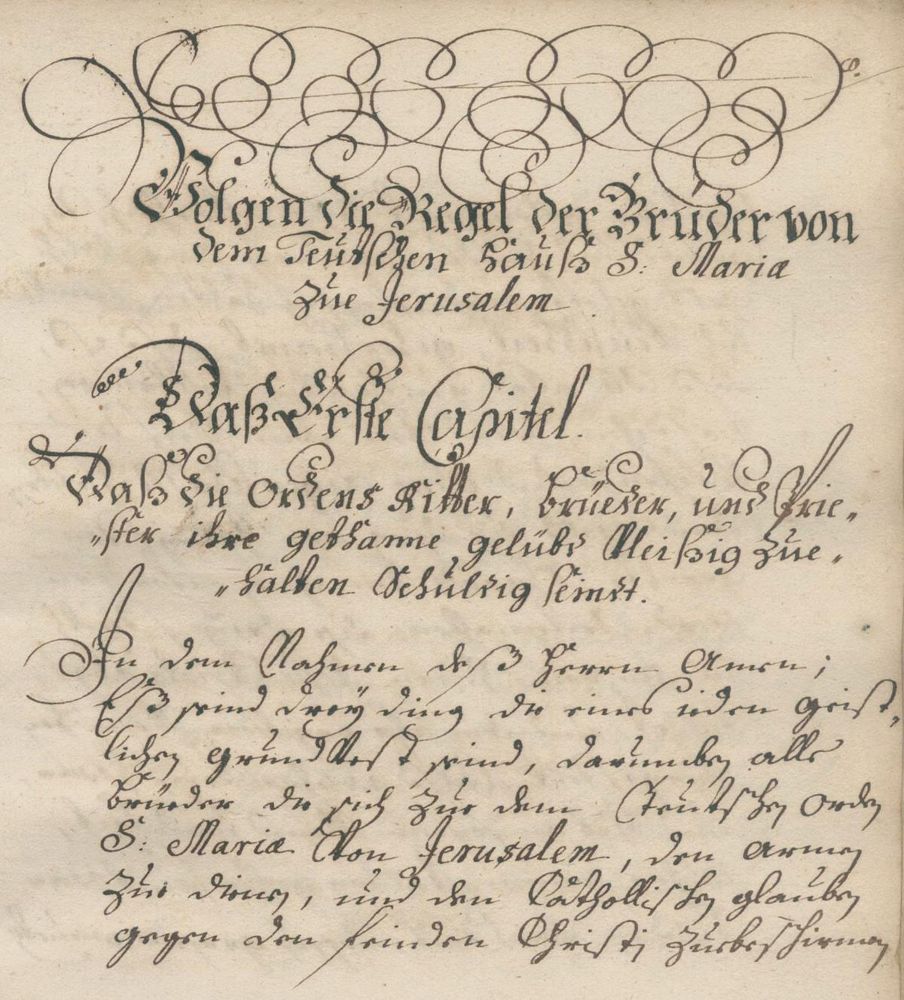 8.
Volgen die Regel der Brüder von
dem Teutschen Hauß S: Mariæ
zue Jerusalem.
Daß Erste Capitel.
Daß die Ordens Ritter, brüeder, und Prie„
„ster ihre gethanne gelübd Vleißig zue„
„halten Schuldig seindt.
In dem Nahmen deß Herrn Amen;
Eß seind drey ding die eines ieden geist„
lichen grund Vest seind, darumben alle
brüeder die sich zue dem Teutschen Orden
S: Mariæ Von Jerusalem, den armen
zue dienen, und den Catholischen glauben
gegen den feinden Christi zuebeschirmen